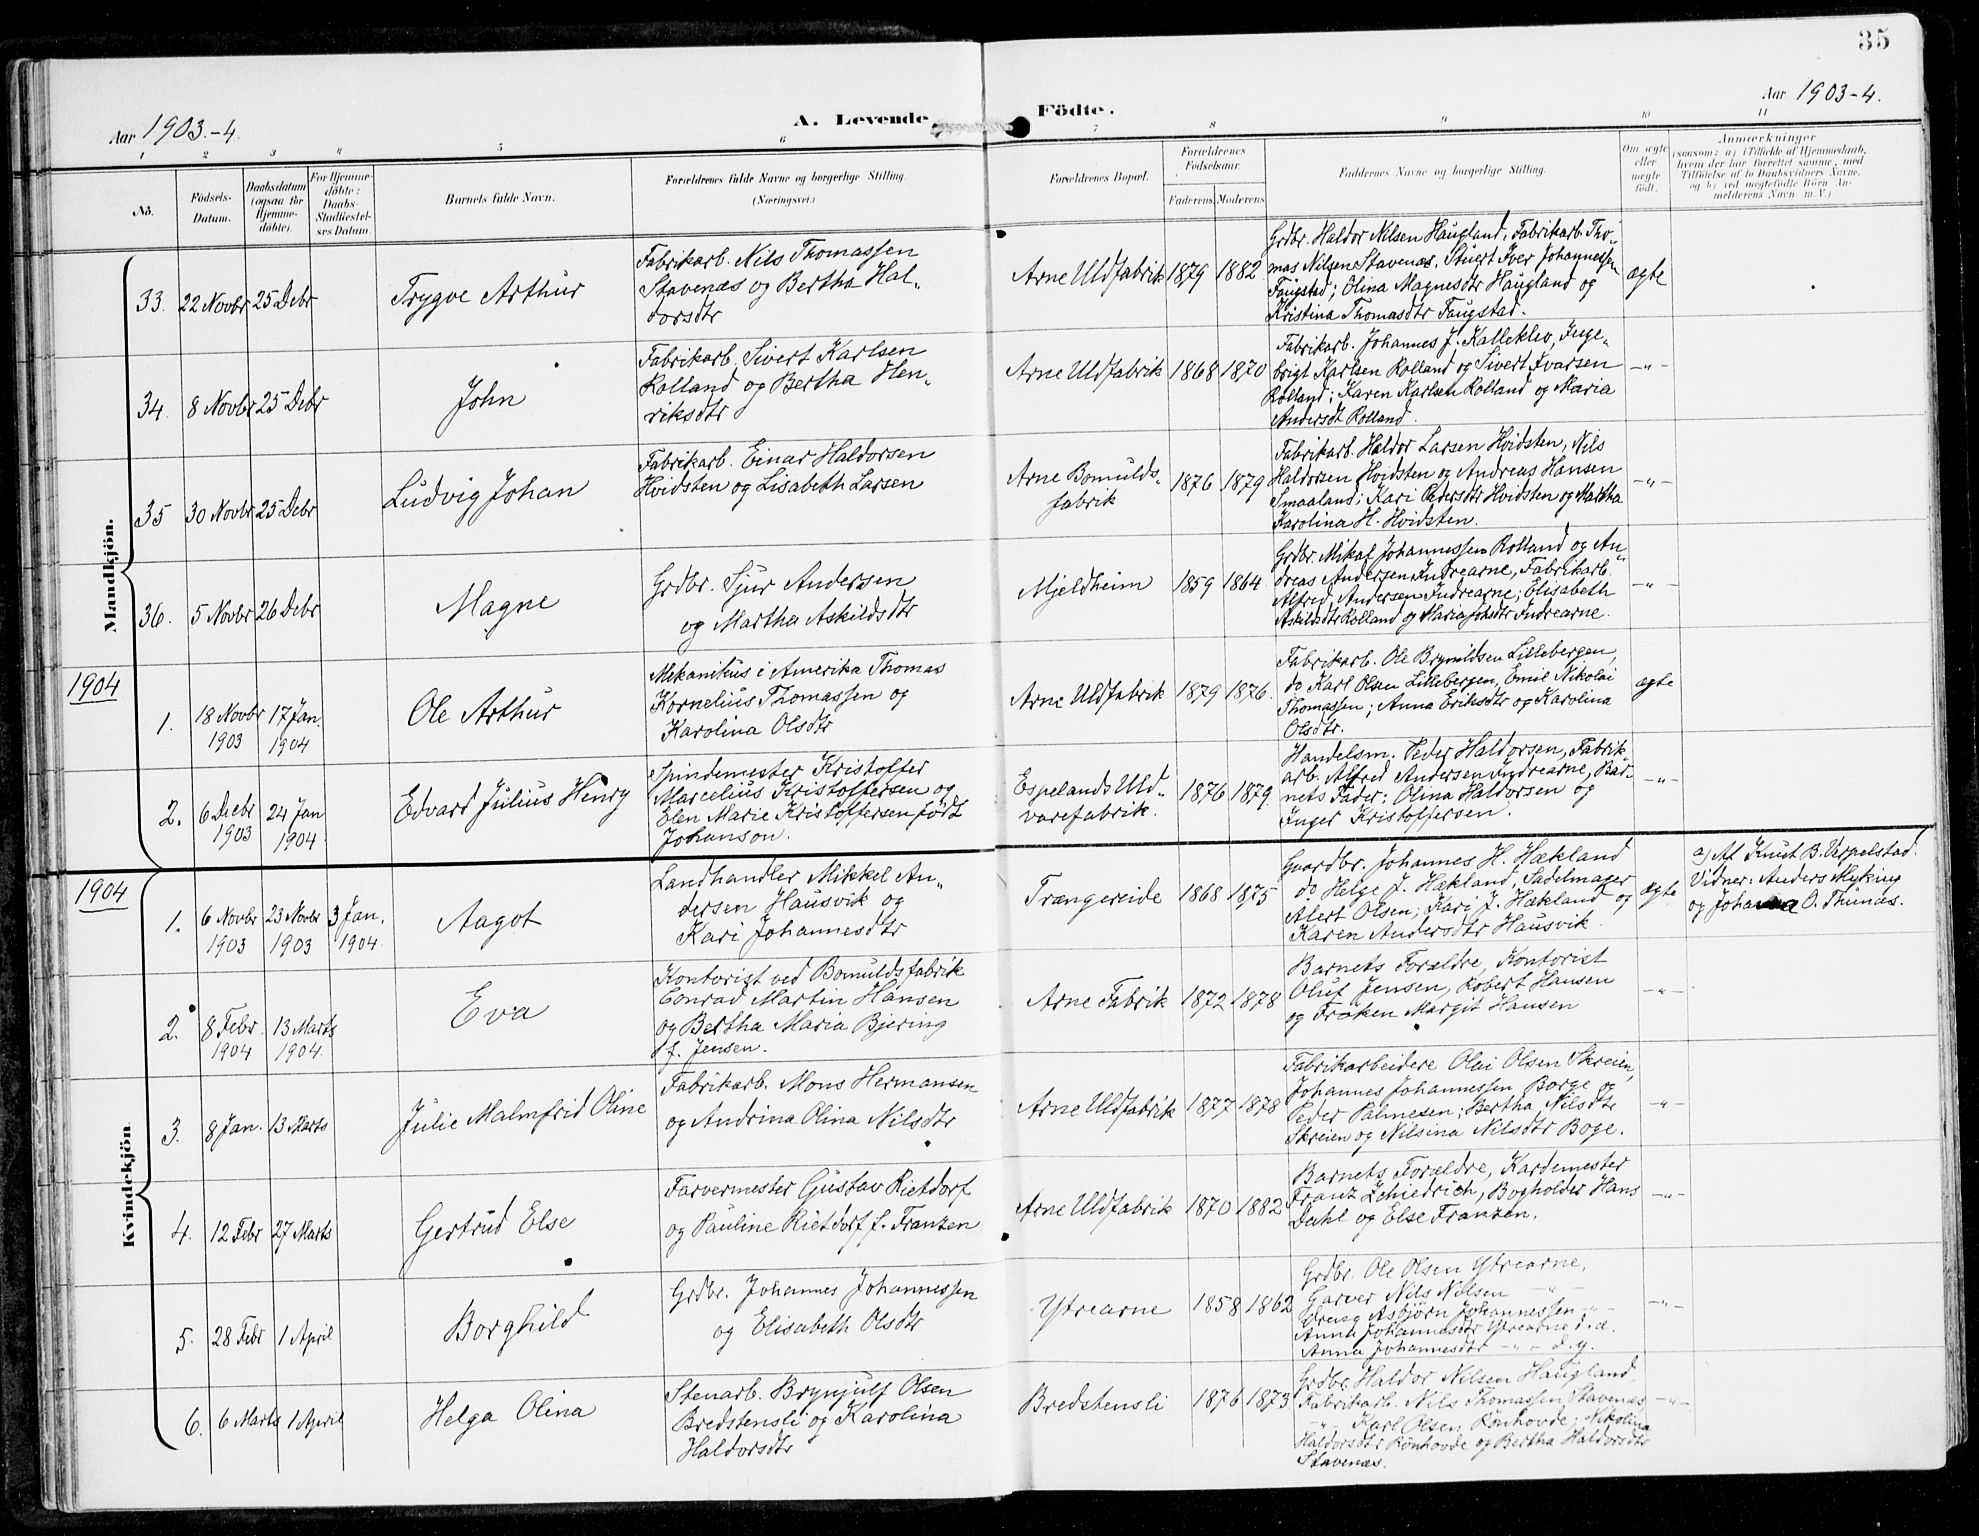 35
Aar 1903.-4.
A. Levende
Födte.
Aar 1903-4.
1 2 3 4 5 6 7 8 9 10 11
No.
Födsels-
Datum.
Daabsdatum
(ogsaa for
Hjemme-
döbte).
For Hjemme-
döbte:
Daabs-
Stadfæstel-
ses Datum.
Barnets fulde Navn.
Forældrenes fulde Navne og borgerlige Stilling.
(Næringsvei.)
Forældrenes Bopæl.
Forældrenes
Födselsaar.
Faderens. Moderens.
Faddernes Navne og borgerlige Stilling.
Om ægte
eller
uægte
født.
Anmærkninger
(saasom: a) i Tilfælde af Hjemmedaab,
hvem der har forrettet samme, med
Tilföielse af to Daabsvidners Navne,
og b) ved uægtefødte Börn An-
melderens Navn m. V.)
Mandkjön.
33. 22 Novbr 25 Debr
Trygve Arthur
Fabrikarb. Nils Thomassen
Stavenæs og Bertha Hal-
dorsdtr
Arne Uldfabrik 1879 1882
Grdbr. Haldor Nilsen Haugland, Fabrikarb. Tho-
mas Nilsen Stavenæs, Stuert Iver Johannessen
Faugstad; Olina Magnesdtr Haugland og
Kristina Thomasdtr Faugstad.
ægte
34. 8 Novbr 25 Debr
John
Fabrikarb. Sivert Karlsen
Rolland og Bertha Hen-
riksdtr
Arne Uldfabrik 1868 1870
Fabrikarb. Johannes J. Kalleklev, Inge-
brigt Karlsen Rolland og Sivert Ivarsen
Rolland; Karen Karlsen Rolland og Maria
Andersdt Rolland.
-"-
35 30 Novbr 25 Debr
Ludvig Johan
Fabrikarb. Einar Haldorsen
Hvidsten og Lisabeth Larsen
Arne Bomulds-
fabrik
1876 1879
Fabrikarb. Haldor Larsen Hvidsten, Nils
Haldorsen Hvidsten og Andreas Hansen
Smaaland; Kari Pedersdtr Hvidsten og Martha
Karolina H. Hvidsten.
-"-
36. 5 Novbr 26 Debr
Magne
Grdbr. Sjur Andersen
og Martha Askildsdtr
Mjeldheim 1859 1864
Grdbr. Mikal Johannessen Rolland og An-
dreas Andersen Indrearne, Fabrikarb.
Alfred Andersen Indrearne; Elisabeth
Askildsdtr Rolland og Maria Johsdtr Indrearne.
-"-
1904
1. 18 Novbr 17 Jan.
1903 1904
Ole Arthur
Mekanikus i Amerika Thomas
Kornelius Thomassen og
Karolina Olsdtr
Arne Uldfabrik 1879 1876.
Fabrikarb. Ole Brynildsen Lillebergen,
do Karl Olsen Lillebergen, Emil Nikolai
Thomassen; Anna Eriksdtr og Karolina
Olsdtr.
ægte
2. 6 Debr 24 Jan
1903 1904
Edvard Julius Henry
Spindemester Kristoffer
Marcelius Kristoffersen og
Elen Marie Kristoffersen født
Johanson.
Espelands Uld-
varefabrik.
1876 1879.
Handelsm. Peder Haldorsen, Fabrik
arb. Alfred Andersen Indrearne, Bar-
nets Fader; Olina Haldorsen og
Inger Kristoffersen.
-"-
1904
Kvindekjön.
1. 6 Novbr 23 Novbr 3 Jan.
1903 1903 1904.
Aagot
Landhandler Mikkel An-
dersen Hausvik og
Kari Johannesdtr
Trængereide 1868 1875
Gaardbr. Johannes H. Hækland
do Helge J. Hækland, Sadelmager
Alert Olsen; Kari J. Hækland og
Karen Andersdtr Hausvik.
ægte
a) Af Knut B. Vespelstad.
Vidner: Anders Myking
og Johanna O. Thunæs.
2. 8 Febr. 13 Marts
1904 1904.
Eva
Kontorist ved Bomuldsfabrik
Conrad Martin Hansen
og Bertha Maria Bjering
f. Jensen.
Arne Fabrik 1872 1878
Barnets Forældre, Kontorist
Oluf Jensen, Robert Hansen
og Frøken Margit Hansen
-"-
3. 8 Jan. 13 Marts
Julie Malmfrid Oline
Fabrikarb. Mons Hermansen
og Andrina Olina Nilsdtr
Arne Uldfabrik 1877 1878
Fabrikarbeidere Olai Olsen Skreien,
Johannes Johannessen Borge og
Peder Palmesen; Bertha Nilsdtr
Skreien og Nilsina Nilsdtr Boge.
-"-
4. 12 Febr 27 Marts
Gertrud Else
Farvermester Gustav Rietdorf
og Pauline Rietdorf f. Franzen
Arne Uldfabrik 1870 1882
Barnets Forældre, Kardemester
Franz Schiedrich, Bogholder Hans
Dahl og Else Franzen.
-"-
5. 28 Febr 1 April
Borghild
Grdbr. Johannes Johannessen
og Elisabeth Olsdtr
Ytrearne 1858 1862
Grdbr. Ole Olsen Ytrearne,
Garver Nils Nilsen -"-
Dreng Asbjörn Johannessen -"-
Anna Johannesdtr Ytrearne d. æ.
Anna Johannesdtr -"- d. y.
-"-
6. 6 Marts 1 April
Helga Olina
Stenarb. Brynjulf Olsen
Bredstensli og Karolina
Haldorsdtr
Bredstensli 1876 1873
Grdbr. Haldor Nilsen Haugland,
Fabrikarb. Nils Thomassen Stavenæs
-"- Karl Olsen Rönhovde; Nikolina
Haldorsdtr Rönhovde og Bertha Haldorsdtr
Stavenæs.
-"-